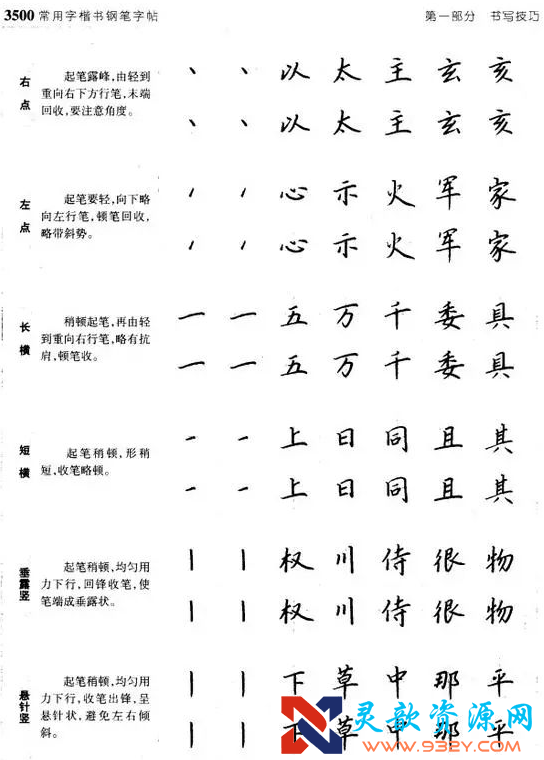 3500常用字楷书钢笔字帖 第一部分 书写技巧
右点
起笔露峰,由轻到
重向右下方行笔,末端
回收,要注意角度。
丶 丶 以 太 主 玄 亥
丶 丶 以 太 主 玄 亥
左点
起笔要轻,向下略
向左行笔,顿笔回收,
略带斜势。
心 示 火 军 家
心 示 火 军 家
长横
稍顿起笔,再由轻
到重向右行笔,略有抗
肩,顿笔收。
一 一 五 万 千 委 具
一 一 五 万 千 委 具
短横
起笔稍顿,形稍
短,收笔略顿。
一 一 上 日 同 且 其
一 一 上 日 同 且 其
垂露竖
起笔稍顿,均匀用
力下行,回锋收笔,使
笔端成垂露状。
丨 丨 权 川 侍 很 物
丨 丨 权 川 侍 很 物
悬针竖
起笔稍顿,均匀用
力下行,收笔出锋,呈
悬针状,避免左右倾
斜。
丨 丨 下 草 中 那 平
丨 丨 下 草 中 那 平
灵歆资源网
www.932Y.com